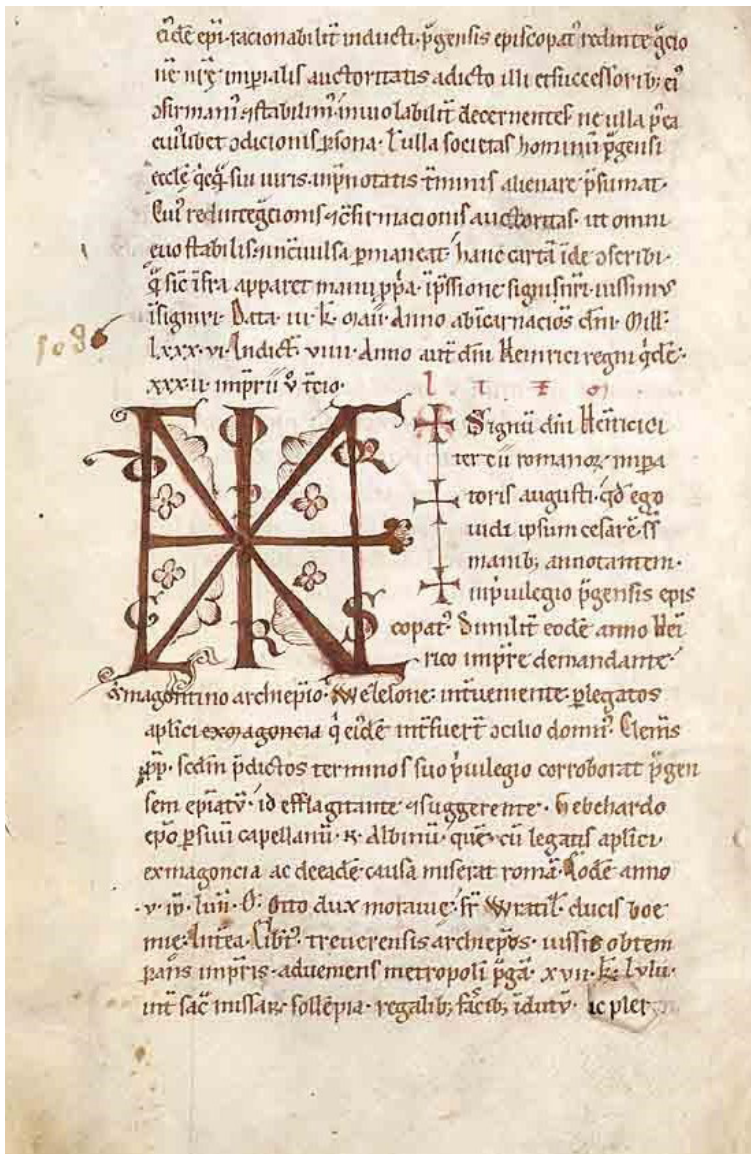 eidē epī· racionabilit̄ inducti· p̄gensis episcopatꝰ redinteg̍cio
nē nr̄ę imp̄ialis auctoritatis adicto illi et successorib; eiꝰ
ↄfirmamꝰ ⁊stabilimꝰ· inuiolabilit̄ decernentes ne ulla p̄ea
cuiꝰlibet ↄdicionis p̄sona· ł ulla societas hominū p̄gensi
eccłę q̍cq̄ sui iuris· inp̄notatis t̄minis alienare p̄sumat·
Cuiꝰ redinteg̍cionis ⁊ↄfirmacionis auctoritas· ut omni
euo stabilis ⁊incōuulsa p̄maneat· hanc cartā īde ↄscribi·
q̄ sic̄ īfra apparet manu pp̍a īp̄ssione signi sui nr̄i iussimꝰ
īsigniri· Data· iii· k̄· Maii· Anno ab īcarnacioē dn̄i· Mill·
lxxx· vi· Indict̄· viiii· Anno aut̄ dn̄i heinrici regni q̍dē·
xxx·ii· imp̄rii ū t̄cio·
1086
l t
P R
C R S
Signū dn̄i Heinrici
tercii romanoꝝ impa
toris augusti· qd̄ ego
uidi ipsum cesarē ss̄
manib; annotantem·
inp̍uilegio p̄gensis epis
copatꝰ· Similit̄ eodē anno Hei
rico imp̄re demandante·
⁊ magontino archiep̄io· Wezelone· int̄ueniente· p̄legatos
aplīci ex magoncia q̍ eidē int̄fuer̄t ↄcilio domnꝰ· Clem̄s
pp̄· scdm̄ p̄dictos terminos suo p̍uilegio corroborat p̄gen
sem ep̄iatū· id efflagitante ⁊suggerente· Gebehardo
ep̄o p̄suū capellanū· n̄· Albinū· quē cū legatis aplīci
ex magoncia ac deeadē causa miserat romā· Eodē anno
·v· id̄· Iunī· O· Otto dux morauię· fr̄ Wratił· ducis boe
mię· Antea· Eilbꝰt̄· treuerensis archiep̄os· iussis obtem
p̄ans imp̄ris· adueniens metropolī p̄gā· xvii· k̄· Iulii·
int̄ sac̍ missaꝝ sollēpia· regalib; fascib; īdutū·